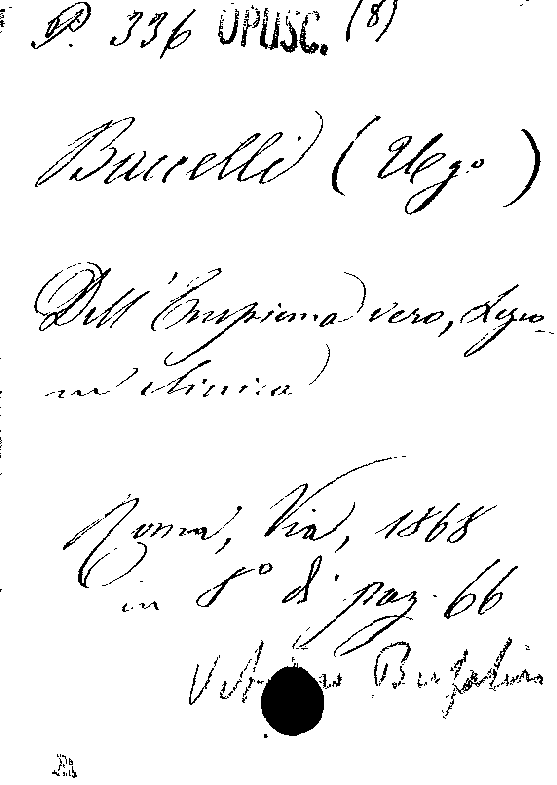 P. 336 OPUSC. (8)
Baccelli (Ugo)
Dell'Empiema vero, Lezio-
ne clinica
Roma, Via, 1868
in 8° di pag. 66
Bufalini